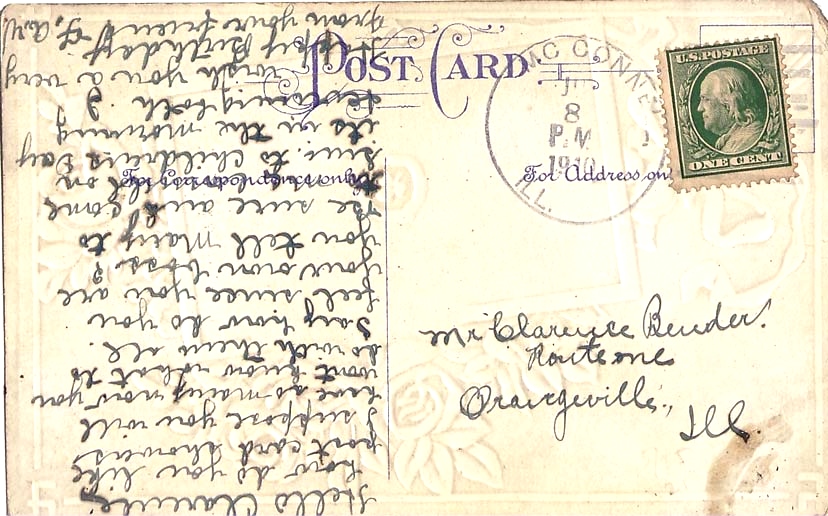 POST CARD
For Correspondence only
For Address on
MC CONNE
8
P.M.
1910
ILL.
U.S. POSTAGE
ONE CENT
Mr Clarence Bender.
Route one
Orangeville,
Ill.
Hello Clarence
how do you like
post card showers
I suppose you will
have so many now you
wont know what to
do with them all.
Say how do you
feel since you are
your own boss?
you tell Mary to
be sure and come
on
Sun. to Childrens Day
its in the morning
I
wish you a very
Happy Birthday
from your friend